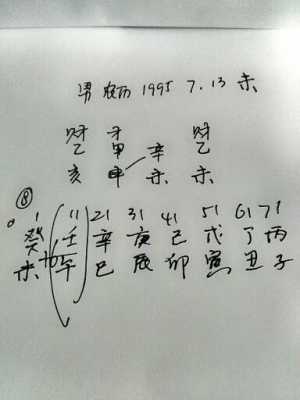 男 农历 1995 7.13 未
财 才 财
乙 甲 辛 乙
亥 申 未 未
⑧
1 11 21 31 41 51 61 71
癸 壬 辛 庚 己 戊 丁 丙
未 午 巳 辰 卯 寅 丑 子